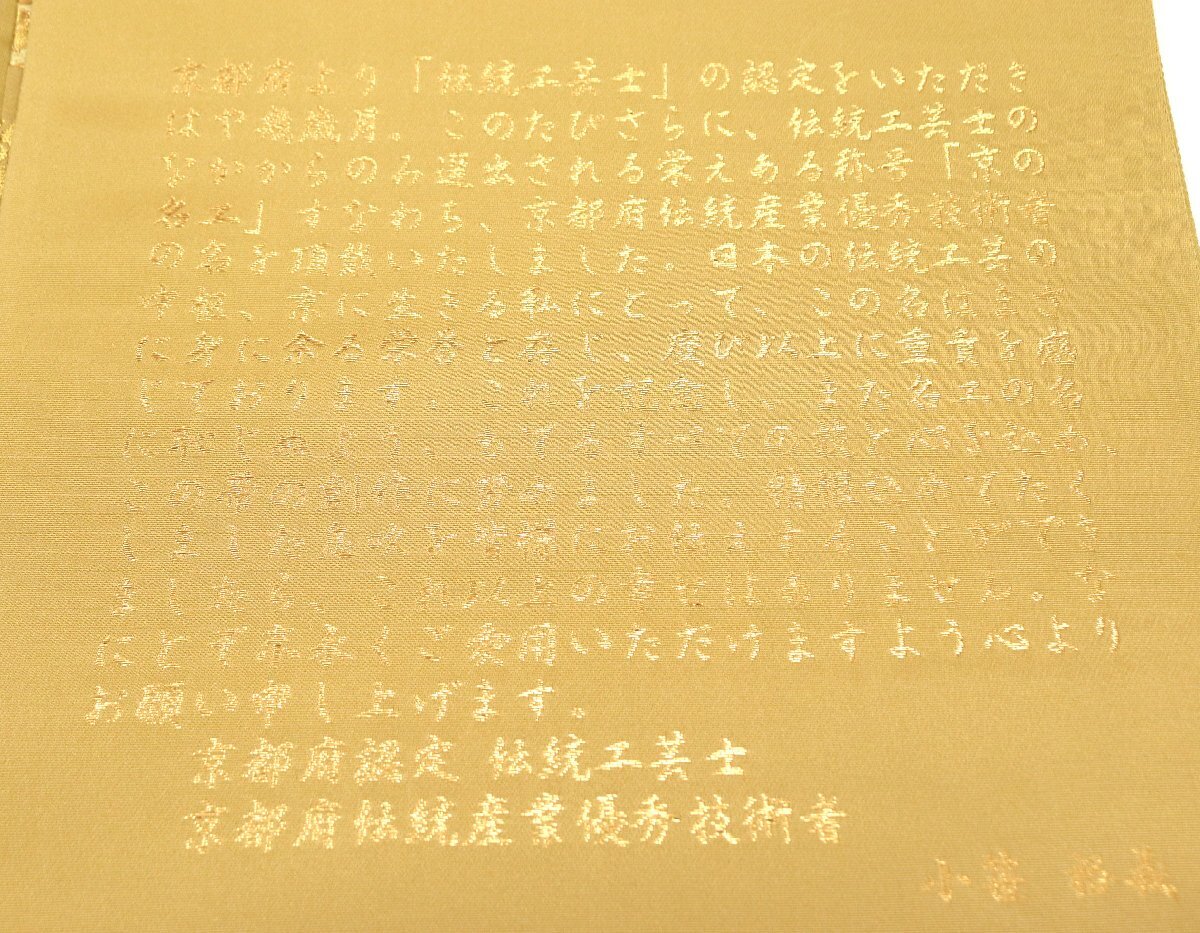 京都府より「伝統工芸士」の認定をいただき
はや幾歳月。このたびさらに、伝統工芸士の
なかからのみ選出される栄えある称号「京の
名工」すなわち、京都府伝統産業優秀技術者
の名を頂戴いたしました。日本の伝統工芸の
中枢、京に生きる私にとって、この名はまさ
に身に余る栄誉と存じ、度び以上に重責を感
じております。これを記念し、また名工の名
に恥じぬよう、すべての技と心を込め、
この帯の創作に努めました。
皆様にお伝えすることができ
ましたら、これ以上の幸せはありません。
末永くご愛用いただけますよう心より
お願い申し上げます。
京都府認定 伝統工芸士
京都府伝統産業優秀技術者
小